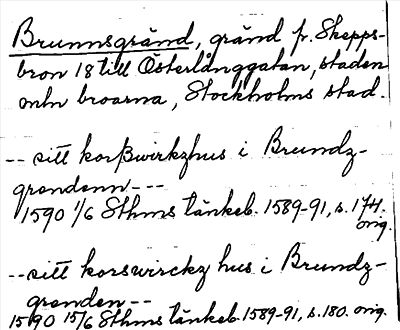 Brunnsgränd, gränd fr. Skepps-
bron 18 till Österlånggatan, staden
mln broarna, Stockholms stad.
-- sitt korßwirkzhus i Brundz-
grendenn---
1590 1/6 Sthms tänkeb. 1589-91, s. 174.
orig.
--sitt korswirckz hus i Brundz-
grenden--
1590 15/6 Sthms tänkeb. 1589-91, s. 180. orig.